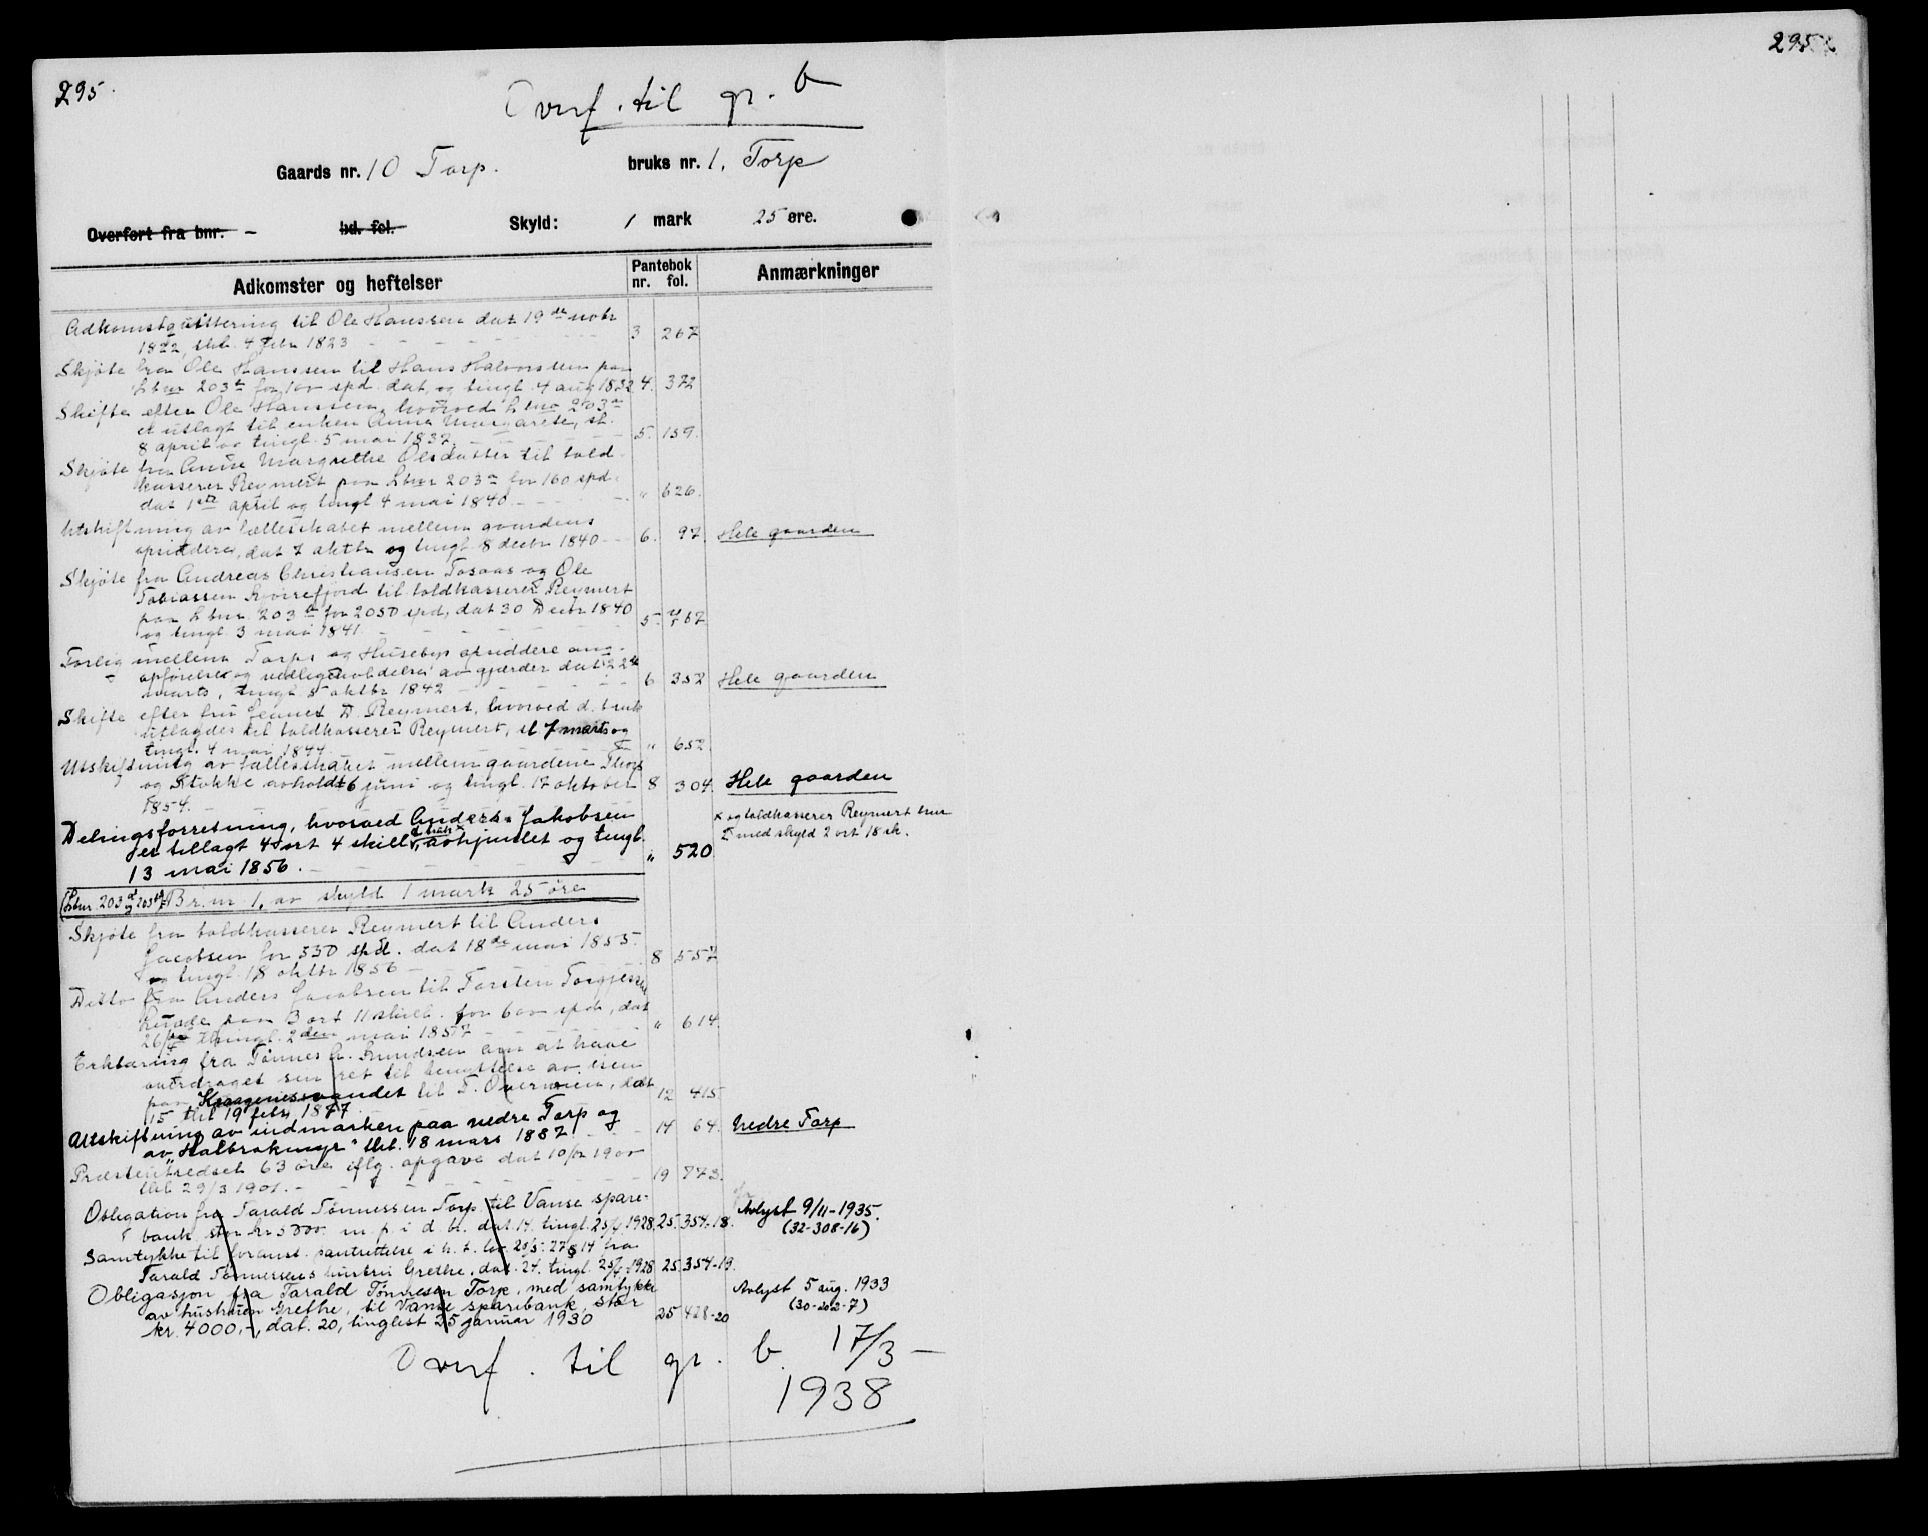 295.
295
Overf. til gr. b
Gaards nr. 10 Torp. bruks nr. 1. Torp
Overført fra bnr. - bd. fol. Skyld: 1 mark 25 øre.
Adkomster og heftelser Pantebok nr. fol. Anmærkninger
Adkomstquittering til Ole Hanssen dat 19de nobr
1822, thl. 4 febr 1823 - - - 3 267
Skjøte fra Ole Hanssen til Hans Halvorssen paa
Lbnr 203 for 100 spd. dat. og tingl. 4 aug 1832 4. 372
Skifte efter Ole Hanssen, hvorved Lbnr 203a
er utlagt til enken Anne Margarete, sl.
8 april og tingl. 5 mai 1837. - - - 5. 159.
Skjøte fra Anne Margrethe Olsdatter til told-
kasserer Reymert paa Lbnr 203a for 160 spd.
dat 1ste april og tingl 4 mai 1840 - - - " 626.
Utskiftning av fællesskabet mellem gaardens
opsiddere, dat 7 oktbr og tingl 8 decbr 1840 - - 6. 97. Hele gaarden
Skjøte fra Andreas Christiansen Tosaas og Ole
Tobiassen Kjørrefjord til toldkasserer Reymert
paa Lbnr 203 for 2050 spd, dat 30 Decbr 1840
og tingl. 3 mai 1841. - - - 5. 767
Forlig mellem Torps og Husebys opsiddere ang.
opførelse og vedligeholdelse av gjærder dat 22de
marts, tingl. 5 oktbr 1842 - - - 6 352 Hele gaarden
Skifte efter fru Jennet D. Reymert, hvorved d. bruk
utlagdes til toldkasserer Reymert, sl 7 marts og
tingl. 4 mai 1844 " 652
Utskiftning av fællesskabet mellem gaardene Thorp
og Stokke avholdt 6 juni og tingl. 17 oktober 8 304. Hele gaarden
1854. -
Delingsforretning, hvorved Anders Jakobsen
er tillagt 4 ort 4 skill, avhjemlet og tingl.
13 mai 1856. - - - " 520
x og toldkasserer Reymert bruk
med skyld 2 ort 18 sk.
(Lbnr. 203 og 203 Br. nr 1. av skyld 1 mark 25 øre
Skjøte fra toldkasserer Reymert til Anders
Jacobsen for 530 spd. dat 18de mai 1855.
og tingl. 18 oktbr 1856 - - - 8 557
Ditto fra Anders Jacobsen til Torsten Torgjersen
paa 3 ort 11 skill. for 600 spd, dat
26/4 tingl. 2den mai 1857 - - - " 614.
Erklæring fra Tønnes A. Gundsen om at have
overdraget sin ret til benyttelse av isen
paa Kraagenesvandet til T. Overwien, dat
15 thl 19 febr 1877 12 415.
Utskiftning av indmarken paa nedre Torp og
av "Halbrokmyr" thl. 18 mars 1887. - - 14 64. Nedre Torp
Præsteutredsel 63 øre iflg. opgave dat 10/12 1900
thl 29/3 1901. - - - 19 773.
Obligation fra Tarald Tønnessen Torp til Vanse spare-
bank stor kr 5000. m p. i d. bl. dat 14. tingl. 25/4 1928. 25. 354-18. Avlyst 9/11-1935.
(32-308-16)
Samtykke til foranst. pantsettelse i h. t. lov 20/5. 27 § 14 fra
Tarald Tønnessens hustru Grethe, dat. 24. tingl. 25/4 1928 25. 354-19.
Obligasjon fra Tarald Tønnesen Torp, med samtykke
av hustruen Grethe, til Vanse sparebank, stor
kr. 4000,-, dat. 20, tinglest 25 januar 1930 25 428-20
Avlyst 5 aug. 1933
(30-202-7)
Overf. til gr. b. 17/3 -
1938